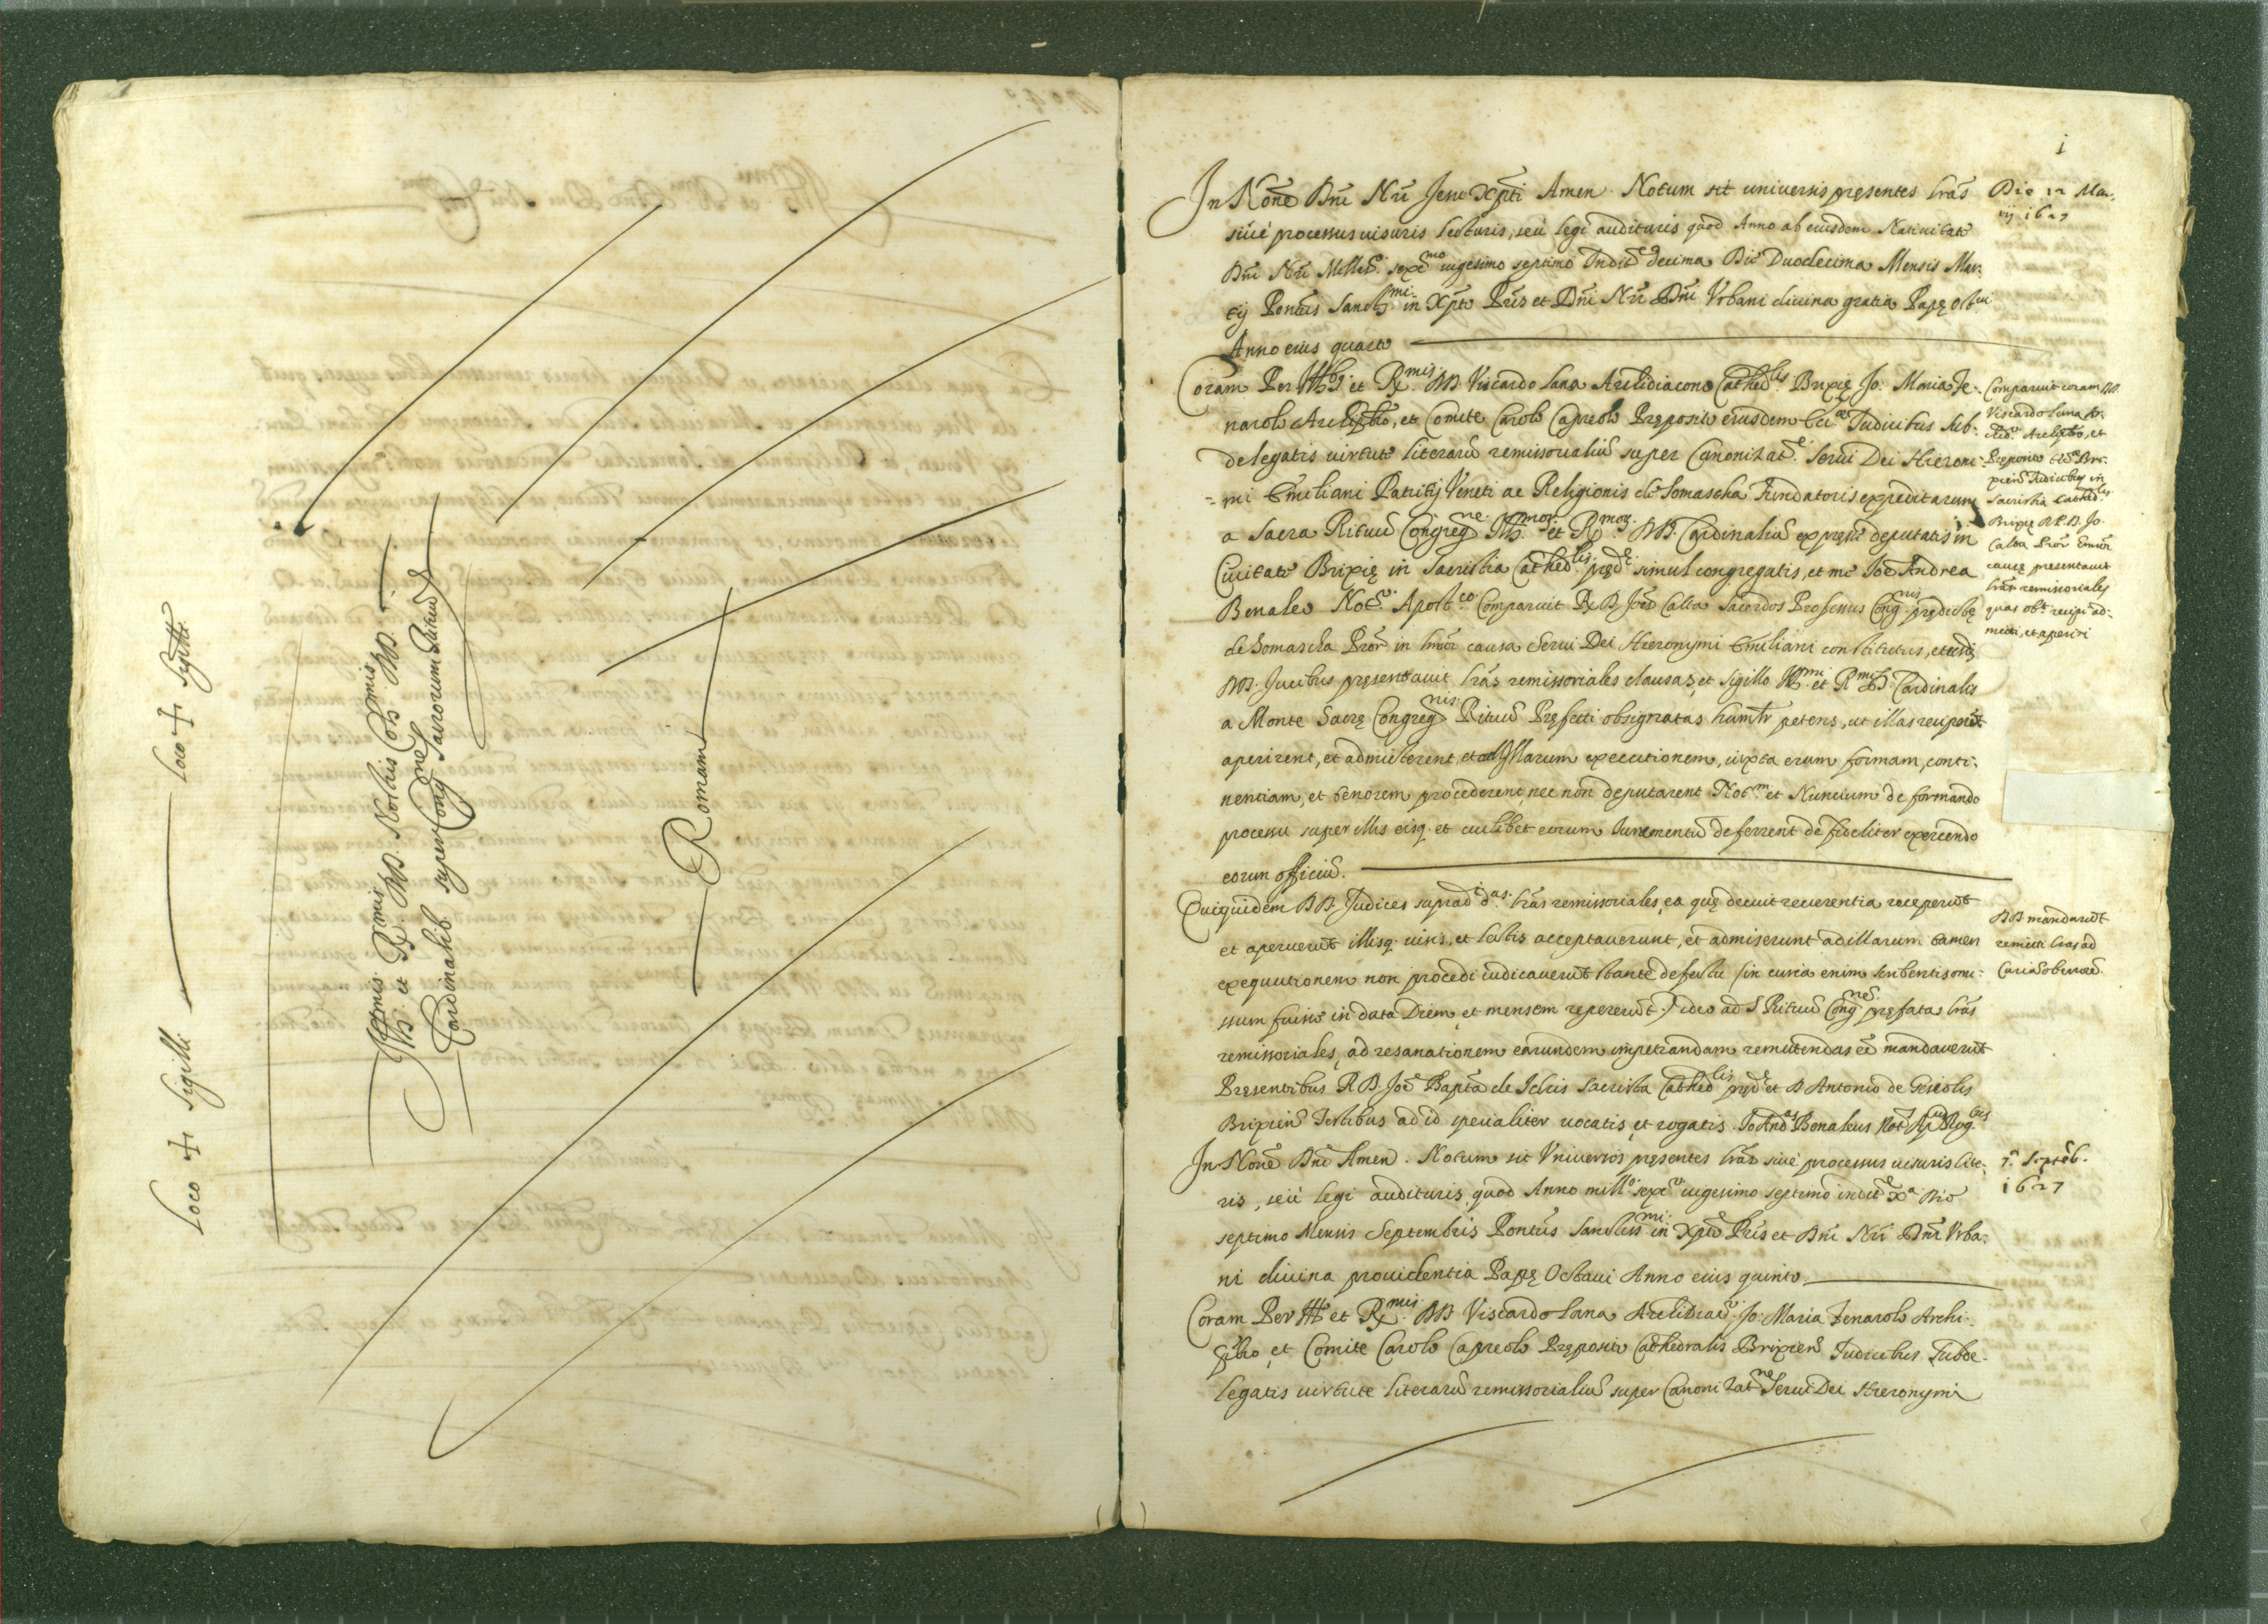 Loco + Sigilli — Loco + Sigilli
Illmis et Rmis DD. Nostris Colmis DD.
Cardinalib super Congne Sacrorum Rituũ
Romam
i
In Noñe Dñi Nri Jesu Xpti Amen Notum sit universis presentes lrãs
siue processus uisuris lecturis, seù legi audituris quod Anno ab eiusdem Natiuitate
Dñi Nri Milles.o sexcmo uigesimo septimo Inditne decima Die Duodecima Mensis Mar-
tij Pontus Sanctmi in Xpto Pris et Dñi Nri Dñi Vrbani diuina gratia Papę Octui
Anno eius quarto
Die 12 Mar-
tij 1627
Coram Per Illbs et Rmis DD Viscardo Lana Archidiacono Cathedlis Brixię Jo: Maria Fe-
narolo Archipbro, et Comite Carolo Capreolo Pręposito eiusdem Ecclae Judicibus Sub-
delegatis uirtute literarũ remissorialiũ super Canonizate Serui Dei Hieroni-
mi Emiliani Patritij Veneti ac Religionis de Somascha Fundatoris expeditarum
a Sacra Rituũ Congregne Illmor et Rmor DD. Cardinaliũ expresse deputatis in
Ciuitate Brixię in Sacristia Cathedlis pręde simul congregatis, et me Joe Andrea
Benaleo Noto Apostco Comparuit R D Joes Calta Sacerdos Professus Congnis prędictę
de Somascha Pror in hmoi causa Serui Dei Hieronymi Emiliani constitutus, et eisdẽ
DD. Jucibus pręsentauit lrãs remissoriales clausas, et Sigillo Illmi et Rmi D. Cardinalis
a Monte Sacrę Congregnis Rituũ Pręfecti obsignatas humlr petens, ut illas reciperẽt
aperirent, et admitterent, et ad illarum executionem, iuxta earum formam, conti-
nentiam, et tenorem procederent, nec non deputarent Notm et Nuncium de formando
processu super illis eisq. et cuilibet eorum Juramentũ deferrent de fideliter exercendo
eorum officiũ.
Comparuit coram DD.
Viscardo Lana Ar-
chido Archipbro, et
Pręposito Eclae Bri-
xien Judicibus in
Sacristia Cathedlis
Brixię R.P.D. Jo.
Calta Pror hmoi
causę presentauit
lrãs remissoriales
quas obt. recipi ad-
mitti, et aperiri
Quiquidem DD. Judices suprad das lrãs remissoriales, ea quę decuit reuerentia receperũt
et aperuerũt illisq. uisis, et lectis acceptauerunt, et admiserunt ad illarum tamen
exequutionem non procedi iudicauerũt stante defectu (in curia enim scribentis omis-
sum fuisse in data Diem, et mensem repererũt.) ideo ad S. Rituũ Congnẽ pręfatas lrãs
remissoriales, ad resanationem earundem impetrandam remittendas eẽ mandauerũt
Pręsentibus R D. Joe Bapta de Ichis Sacrista Cathedlis prde et D Antonio de Geiolis
Brixien Testibus ad id specialiter uocatis, et rogatis. Jo Andas Benaleus Not Apus Rogtus
DD mandarũt
remitti lras ad
Curiã ob errorẽ.
In Noñe Dñi Amen. Notum sit Vniuersis pręsentes lrãs siue processus uisuris lite-
ris, seù legi audituris, quod Anno millo sexco uigesimo septimo inditne Xa Die
septimo Mensis Septembris Pontus Sanctissmi in Xpto Pris et Dñi Nri Dñi Vrba-
ni diuina prouidentia Papę Octaui Anno eius quinto
7.a Septẽb.
1627
Coram Per Ill et Rmis DD Viscardo Lana Archidiaco Jo: Maria Fenarolo Archi-
pbro, et Comite Carolo Capreolo Pręposito Cathedralis Brixien Judicibus Subde-
legatis uirtute literarũ remissorialiũ super Canonizatne Serui Dei Hieronymi